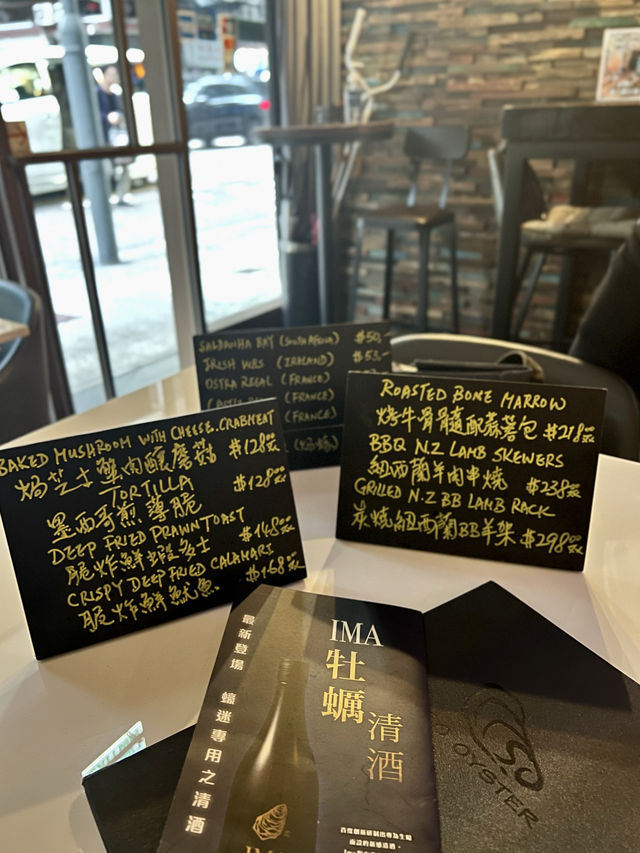 SALDANHA BAY (SOUTH AFRICA) $50.-
IRISH WBS (IRELAND) $53.-
OSTRA REGAL (FRANCE)
(FRANCE)
(FRANCE)
BAKED MUSHROOM WITH CHEESE. CRABMEAT
焗芝士蟹肉釀蘑菇 $128.00
TORTILLA $128.00
墨西哥煎薄脆
DEEP FRIED PRAWN TOAST
脆炸鮮蝦多士 $148.00
CRISPY DEEP FRIED CALAMARI
脆炸鮮魷魚 $168.00
ROASTED BONE MARROW
烤牛骨髓配蒜蓉包 $218.00
BBQ N.Z LAMB SKEWERS
紐西蘭羊肉串燒 $238.00
GRILLED N.Z BB LAMB RACK
炭燒紐西蘭BB羊架 $298.00
最新登場 蠔迷專用之清酒
IMA
牡蠣
清酒
首度創新研制出專為生蠔
IMA
OYSTER